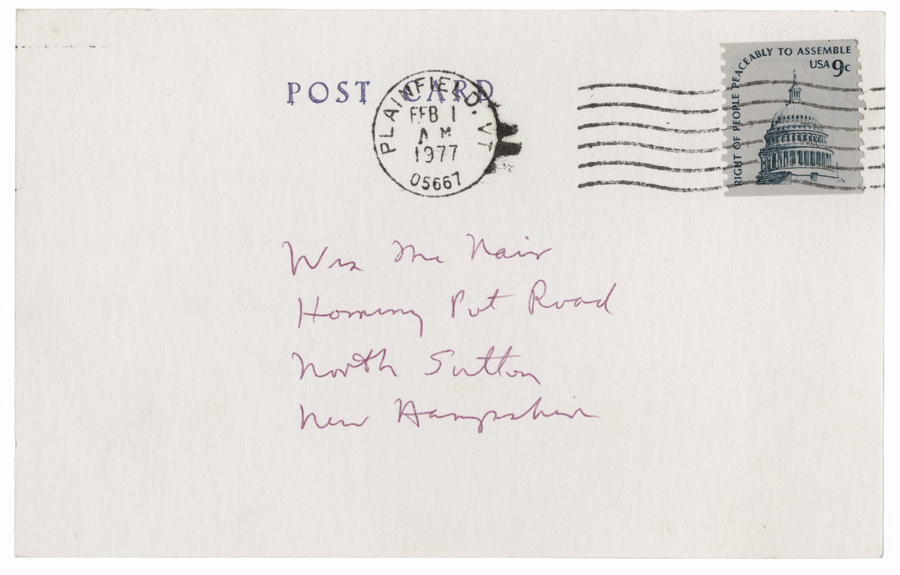 POST CARD
PLAINFIELD, VT
FEB 1
AM
1977
05667
RIGHT OF PEOPLE PEACEABLY TO ASSEMBLE
USA 9c
Wes Mc Nair
Hominy Pot Road
North Sutton
New Hampshire